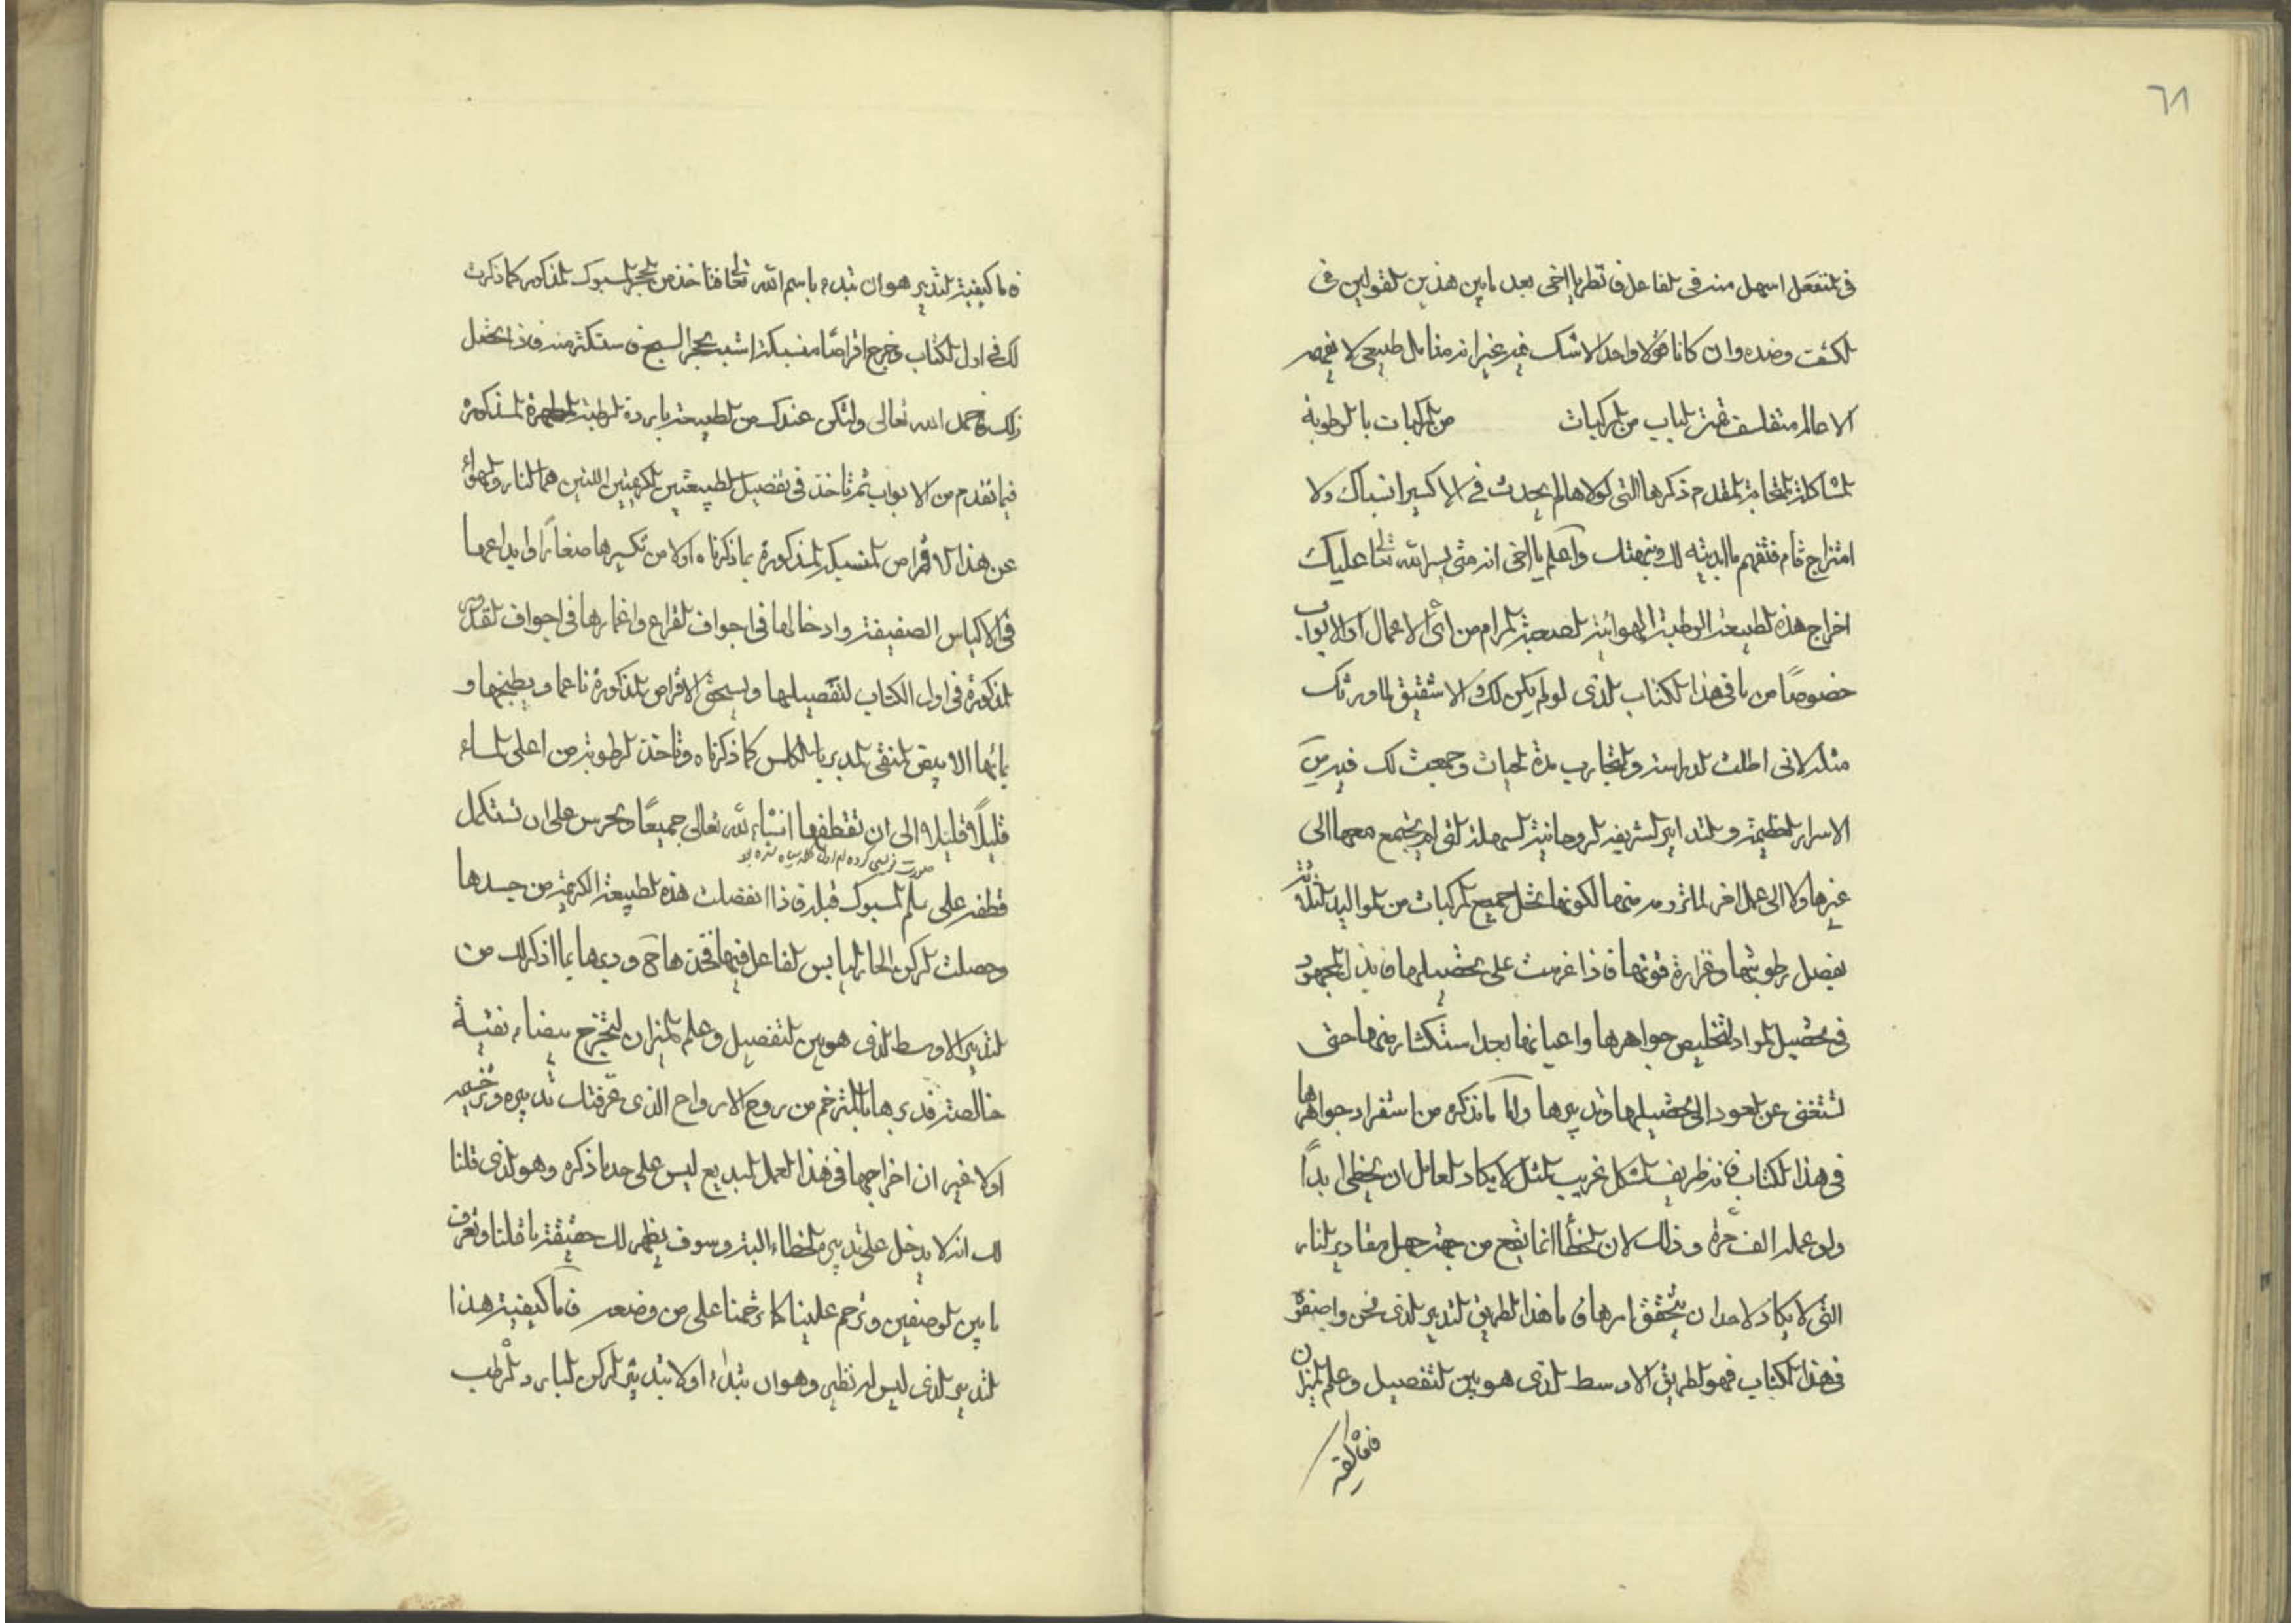 ٦٨
فى لمنفعل اسهل منه فى لفاعل فانظر يا اخى بعد ما بين هذين لقولين فى
لكشف وضده وان كانا قولا واحدا لا شك فيه غير انه مثال طبيعى لا يفهمه
الا عالم متفلسف لباب من لمركبات من لمركبات بالرطوبة
لمشاكلة لمتقدم ذكرها التى لولاها لم يحدث فى الاكسير انسباك ولا
امتزاج تام فتفهم ما ابديته لك ونبهتك واعلم يا اخى انه متى يسر الله تعا عليك
اخراج هذه لطبيعة الرطبة الهوائية لصعبة لمرام من اى الاعمال او الابواب
خصوصًا من باقى هذا لكتاب لذى لو لم يكن لك الا شقيق لما ورثك
مثله لانى اطلت لدراسة ولتجارب مدة لحيات وجمعت لك فيه من
الاسرار لعظيمة ولتدابير لشريفة لروحانية لسهلة لتى لم يجتمع معها الى
غيرها ولا الى عمل اخر لما تروم منها لكونها تحل جميع لمركبات من لمواليد لثلاثة
بفضل رطوبتها وغزارة قوتها فاذا عزمت على تحصيلها فابذل لمجهود
فى تحصيل لمواد لتخليص جواهرها واعيانها بعد استكثار منها حتى
تستغنى عن لعود الى تحصيلها وتدبيرها واما ما نذكره من استفراد جواهرها
فى هذا لكتاب فانه ظريف لشكل غريب لمثل لا يكاد لعامل ان يخطى ابداً
ولو عمله الف مرة وذلك لان لخطأ انما يقع من جهة جهل مقادير لنار
التى لا يكاد لاحد ان يتحقق امرها فاما هذا لطريق لتدبير لذى نحن واصفوه
فى هذا لكتاب فهو لطريق الاوسط لذى هو بين لتفصيل وعلم لميزان
فاما كيفية
فاما كيفية لتدبير هو ان تبدء باسم الله تعا فتاخذ من لحجر لمسبوك لمذكور كما ذكرت
لك فى اول لكتاب وخرج اقراصًا منسبكة اشبه بحجر السبج فاستكثر منه فاذا تحصل
ذلك بحمد الله تعالى وليكن عندك من لطبيعة لباردة لرطبة لمطهرة لمذكورة
فيما تقدم من الابواب ثم تاخذ فى تفصيل لطبيعتين لكريمتين اللتين هما لنار ولهواء
عن هذا الاقراص لمنسبكة لمذكورة بما ذكرناه اولا من تكسيرها صغاراً وايداعها
فى الاكياس الصفيقة وادخالها فى اجواف لقراع واغمارها فى اجواف لقدور
لمذكورة فى اول الكتاب لتفصيلها ويسحق الاقراص لمذكورة ناعما ويطبخها و
بمائها الابيض لمنقى لمدبر بالكلس كما ذكرناه وتاخذ لرطوبة من اعلى لماء
قليلاً قليلا الى ان تقطفها انشاء لله تعالى جميعًا وتحرس على ان تستكمل
قطفه على لمسبوك قبله فاذا انفصلت هذه لطبيعة الكريمة من جسدها
وحصلت لركن الحار ليابس لفاعل فيها فخذها ح ودبرها بما اذكرلك من
لتدبير الاوسط لذى هو بين لتفصيل وعلم لميزان لتخرج بيضاء نقية
خالصة فدبرها بالمترخم من روح الارواح الذى عرفتك تدبيره وترخيمه
اولا غير ان اخراجها فى هذا لعمل لبديع ليس على حد ما ذكره وهو لذى قلنا
لك انه لا يدخل على تدبيره لخطاء البتة وسوف يظهر لك حقيقة ما قلنا وتعرف
ما بين لوصفين وترحم علينا كما ترحمنا على من وضعه فاما كيفية هذا
لتدبير لذى ليس له نظير وهو ان تبداء اولا بتدبير لركن لبارد لرطب